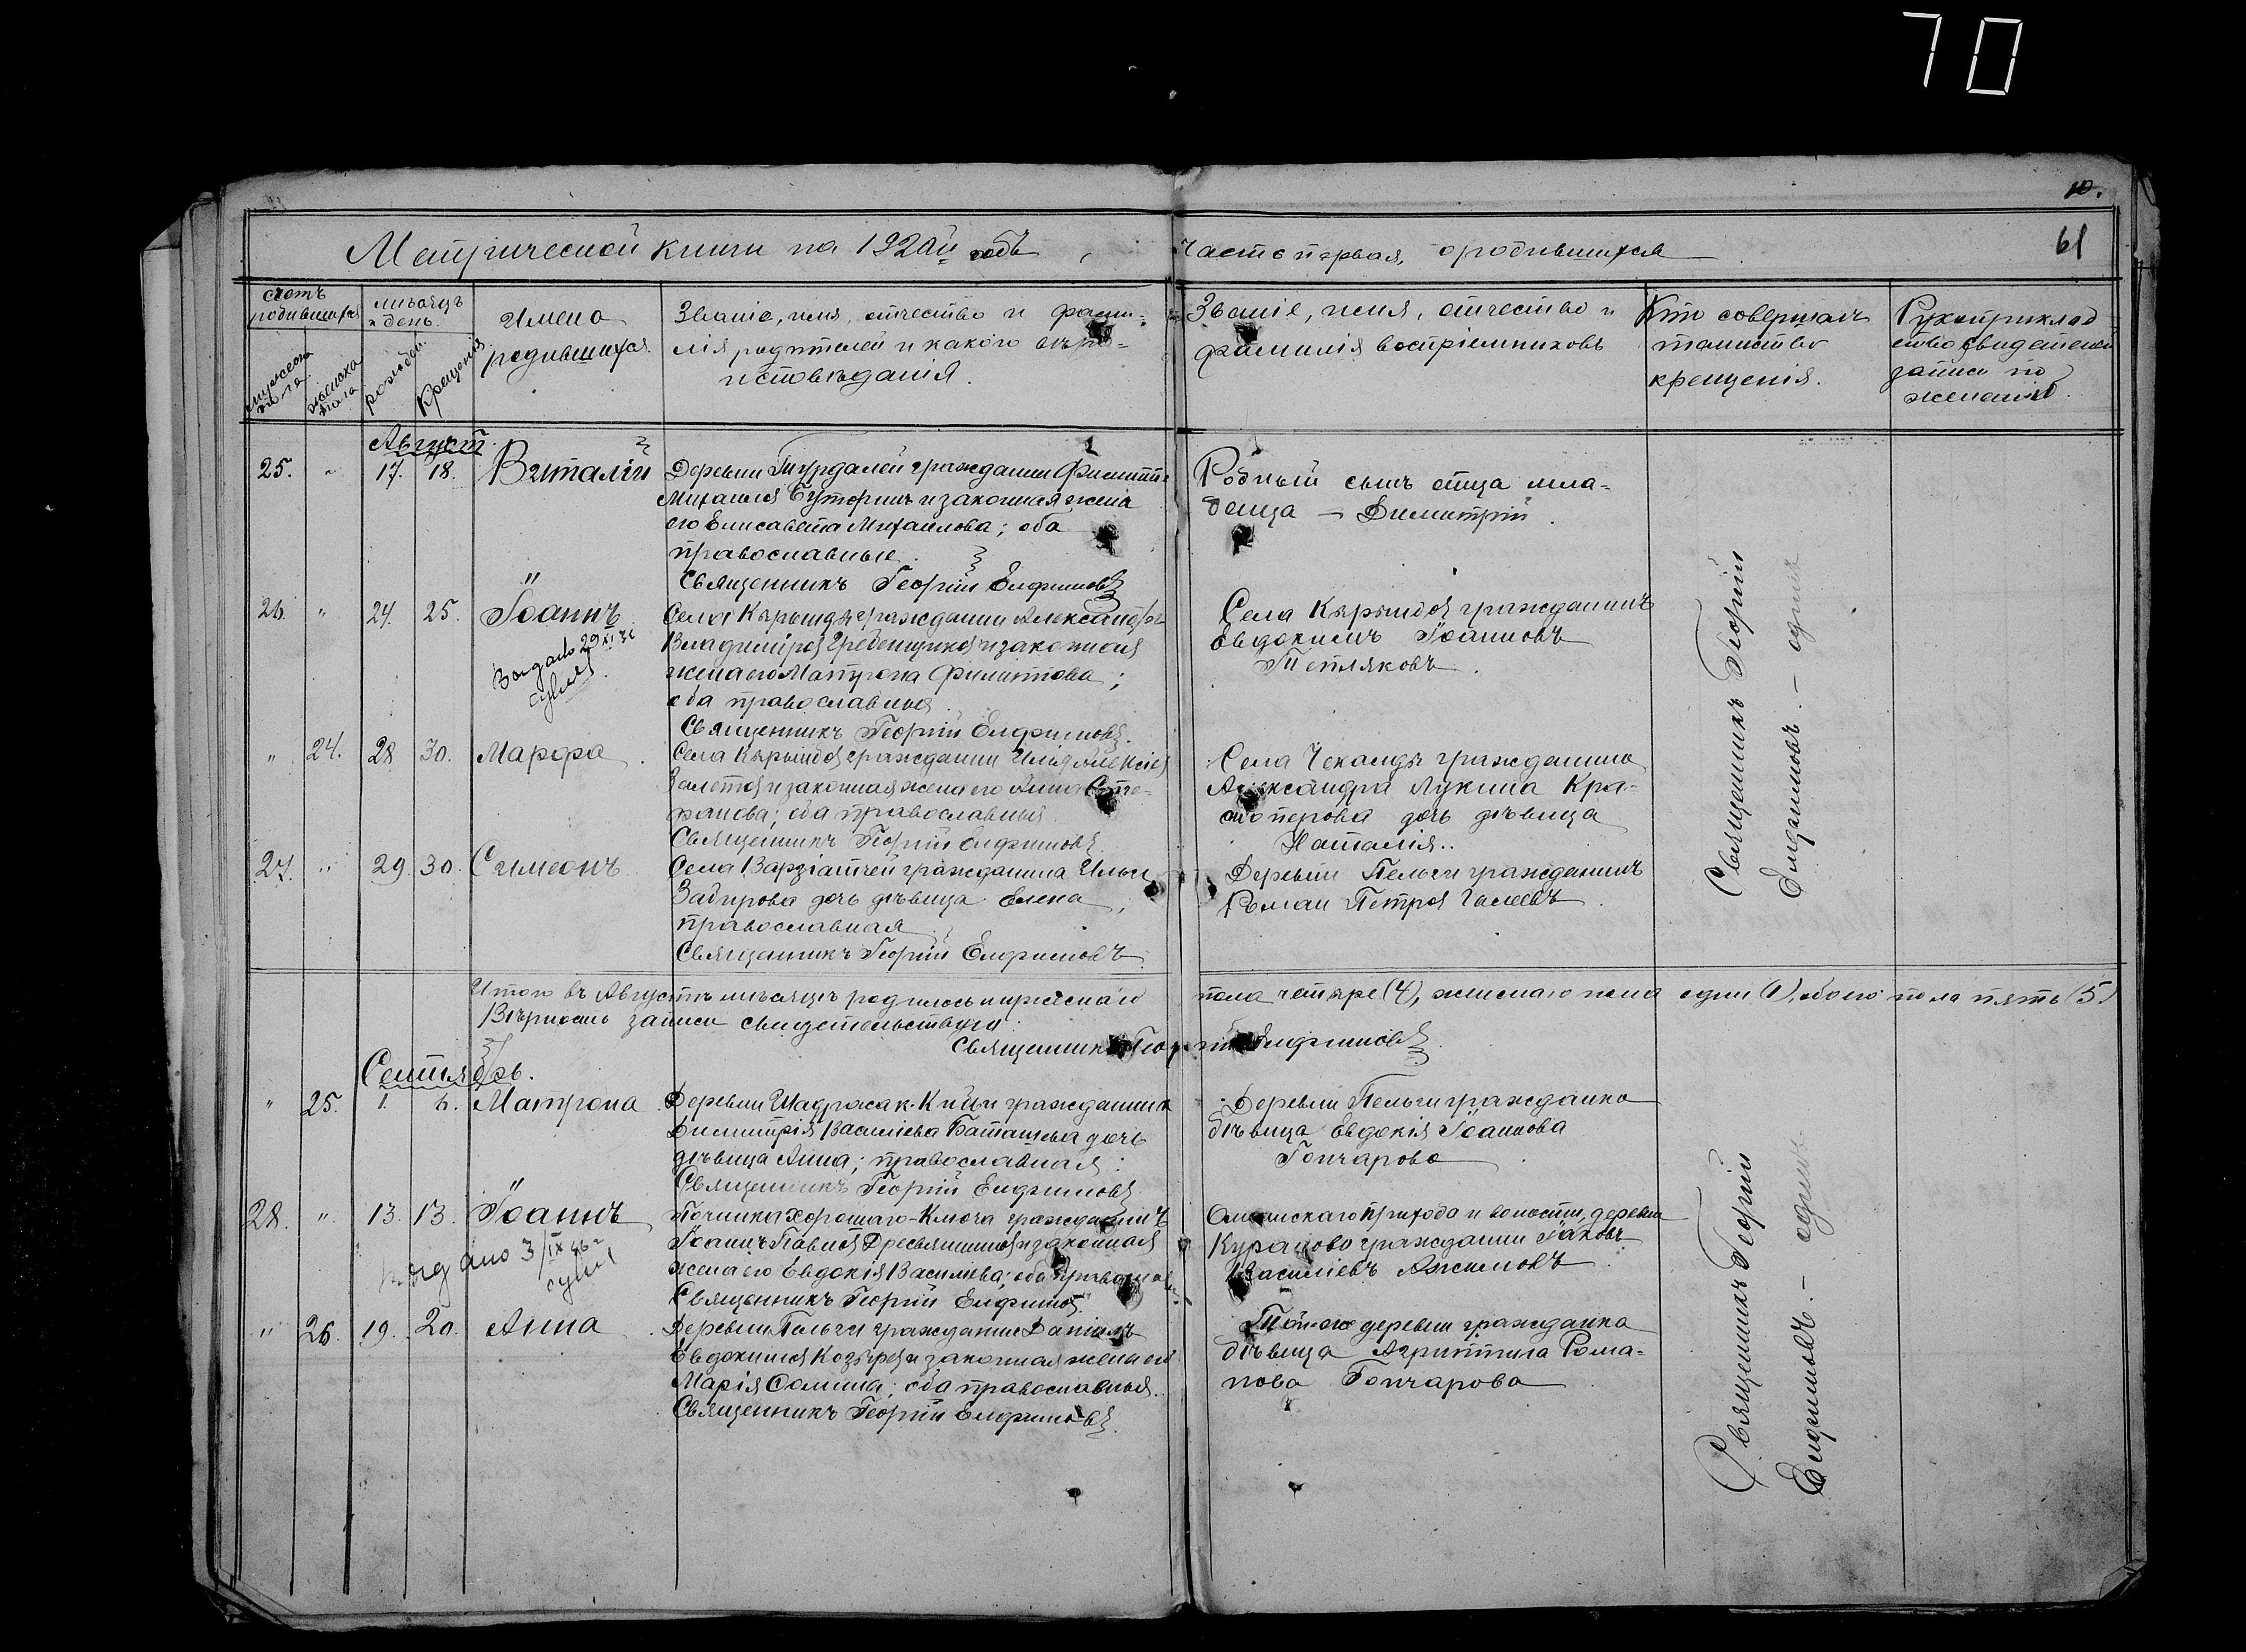 70
10.
61
Метрической книги на 1920й годъ, часть первая, о родившихся
счетъ родившихся
мужеска пола
женска пола
мѣсяцъ и день
рожден.
крещения
Имена
родившихся
Званіе, имя, отчество и фами-
лія родителей и какого вѣро-
исповѣданія.
Званіе, имя, отчество и
фамилія воспріемниковъ
Кто совершалъ
таинство
крещенія.
Рукоприклад
ство свидетелей
записи по
желанію.
Август
25. " 17. 18. Виталій
Деревни Тигурдалей гражданин Филиппъ
Михаилов Буторинъ и законная жена
его Елисавета Михаилова; оба
православные.
Священникъ Георгій Елфимовъ
Родный сынъ отца мла-
денца — Димитрій.
26. " 24. 25. Іоаннъ
Выдано 29 XI 36
Села Кырынды гражданин Александръ
Владиміров Гребенщиков и законная
жена его Матрона Филиппова;
оба православныя.
Священникъ Георгій Елфимовъ.
Села Кырынды гражданинъ
Евдокимъ Іоанновъ
Тепляковъ.
" 24. 28 30. Марфа
Села Кырынды гражданин Илія Алексіев
Залетов и законная жена его Анна Сте-
фанова; оба православныя.
Священникъ Георгій Елфимовъ.
Села Чеканды гражданина
Александра Лукина Кра-
сноперова дочь дѣвица
Наталія..
27. " 29. 30. Симеонъ
Села Варзіятчей гражданина Ильи
Забирова дочь дѣвица Елена,
православная.
Священникъ Георгій Елфимовъ.
Деревни Пельги гражданинъ
Роман Петров Галеевъ.
Священникъ Георгій
Елфимовъ. — один
Итого въ Августѣ мѣсяцѣ родилось мужескаго пола четыре (4), женскаго пола один (1), обоего пола пять (5)
Вѣрность записи свидетельствую:
Священникъ Георгій Елфимовъ.
Сентябрь.
" 25. 1. 6. Матрона
Деревни Шадрасак-Кибьи гражданина
Димитрія Василіева Баташева дочь
дѣвица Анна; православная.
Священникъ Георгій Елфимовъ
Деревни Пельги гражданка
дѣвица Евдокія Іоаннова
Гончарова.
28. " 13. 13. Іоаннъ
выдано 3/IX 46г
Починка Хорошаго-Ключа гражданинъ
Іоаннъ Павлов Дресвянников и законная
жена его Евдокія Василіева; оба православ
Священникъ Георгій Елфимов.
прихода и волости, деревни
Кураково гражданин Іаковъ
Василіевъ Акимовъ.
" 26. 19. 20. Анна
Деревни Пельги гражданин Даніилъ
Евдокимов Козырев и законная жена его
Марія Сомина; оба православныя.
Священникъ Георгій Елфимовъ.
Той-же деревни гражданка
дѣвица Агриппина Рома-
нова Гончарова.
Священникъ Георгій
Елфимовъ. — один